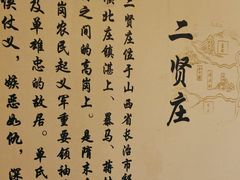 二贤庄
二贤庄位于山西省长治市
横北庄镇湛上、暴马、蒋村
之间的高岗上。是隋末
岗农民起义军重要领袖
及单雄忠的故居。单氏
侠仗义，嫉恶如仇，深